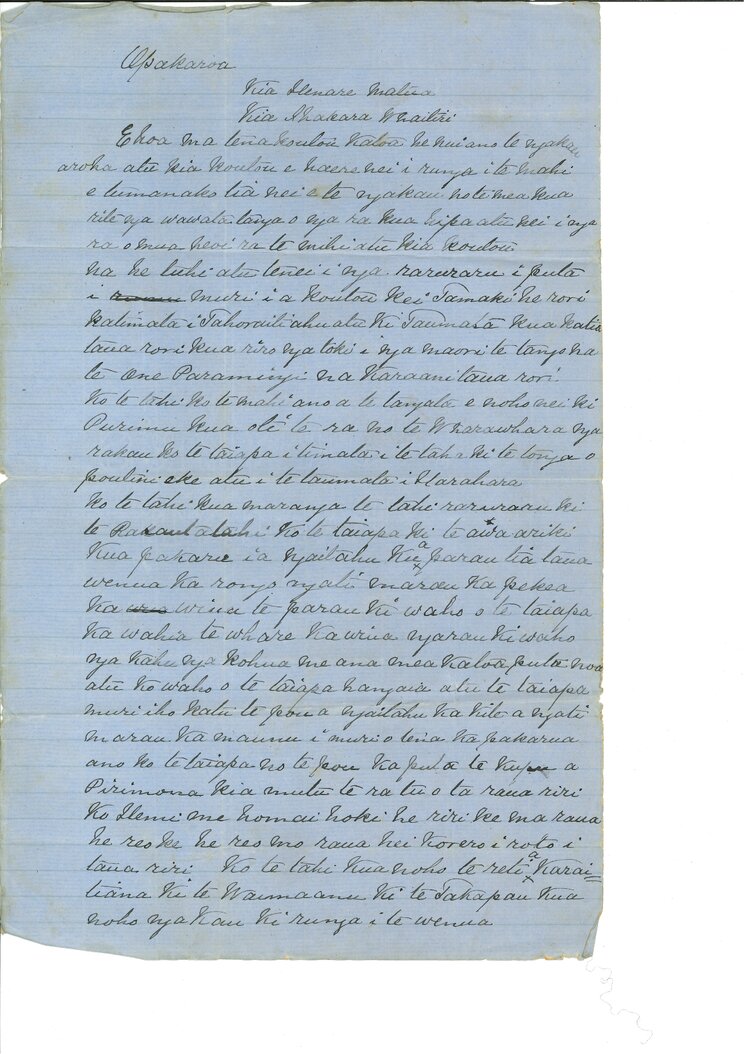 Opakaroa
Kia Henare Matua
Kia Ahakara Whaitiri
Ehoa ma tena koutou katoa he nui ano te ngakau
aroha atu kia koutou e haere nei i runga i te mahi
e tumanako tia nei e te ngakau no te mea kua
rite nga wawata tanga o nga ra kua hipa atu nei i nga
ra o mua heoi ra te mihi atu kia koutou
na he tuhi atu tenei i nga raruraru i puta
i muri i a koutou kei Tamaki he rori
katimata i Tahoraiti ahu atu ki Taumata kua katia
taua rori kua riro nga toki i nga maori te tango na
te One Paraminyi na Karaani taua rori
ko te tahi ko te mahi ano a te tangata e noho nei ki
Purimu kua oti te ra no te Wharawhara nga
rakau ko te taiapa i timata i te taha ki te tonga o
poutini eke atu i te taumata i Harahara
ko te tahi kua maranga te tahi raruraru ki
te Rakautatahi ko te taiapa ki te awa ariki
kua pakaru i a ngaitahu kua parau tia taua
wenua ka rongo ngati marau ka pekea
ka wiua te parau ki waho o te taiapa
ka wahia te whare ka wiua ngarau ki waho
nga kahu nga kohua me ana mea katoa puta noa
atu ko waho o te taiapa hangaia atu te taiapa
muri iho katu te pou a ngaitahu ka kite a ngati
marau ka maunu i muri o tena ka pakarua
ano ko te taiapa no te pou ka puta te kupu a
Pirimona kia mutu te ra tu o ta raua riri
ko Hemi me homai hoki he riri ke ma raua
he reo ke he reo mo raua hei korero i roto i
taua riri Ko te tahi kua noho te reti a Karai=
tiana ki te Waimaanu ki te Takapau kua
noho nga kau ki runga i te wenua